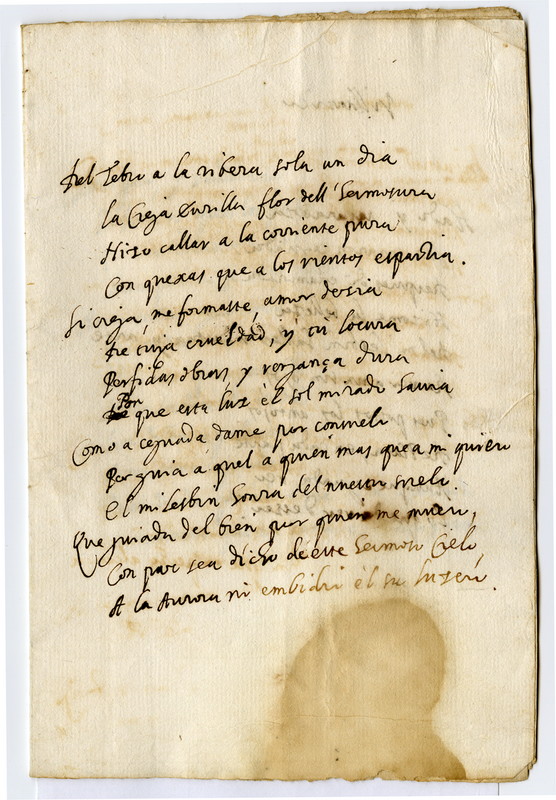 Del Tebro a la ribera sola un dia
la Cieja Eurilla flor dell' Sermosura
Hizo callar a la corriente pura
Con quexas que a los vientos esparzia.
Si cieja, me formaste, amor desia
De tuja crueldad, y tu locura
Perfidas obras, y venjança dura
Por que esta luz el sol mirado Savia
Como a cegada dame por consuelo
Por guia a quel a quien mas que a mi quiero
El mi Lesbin Sonra del nuestro suelo.
Que guiada del bien por quien me muero,
Con paz sea dicho de este Sermoso Cielo,
A la Aurora ni embidio el su luzero.